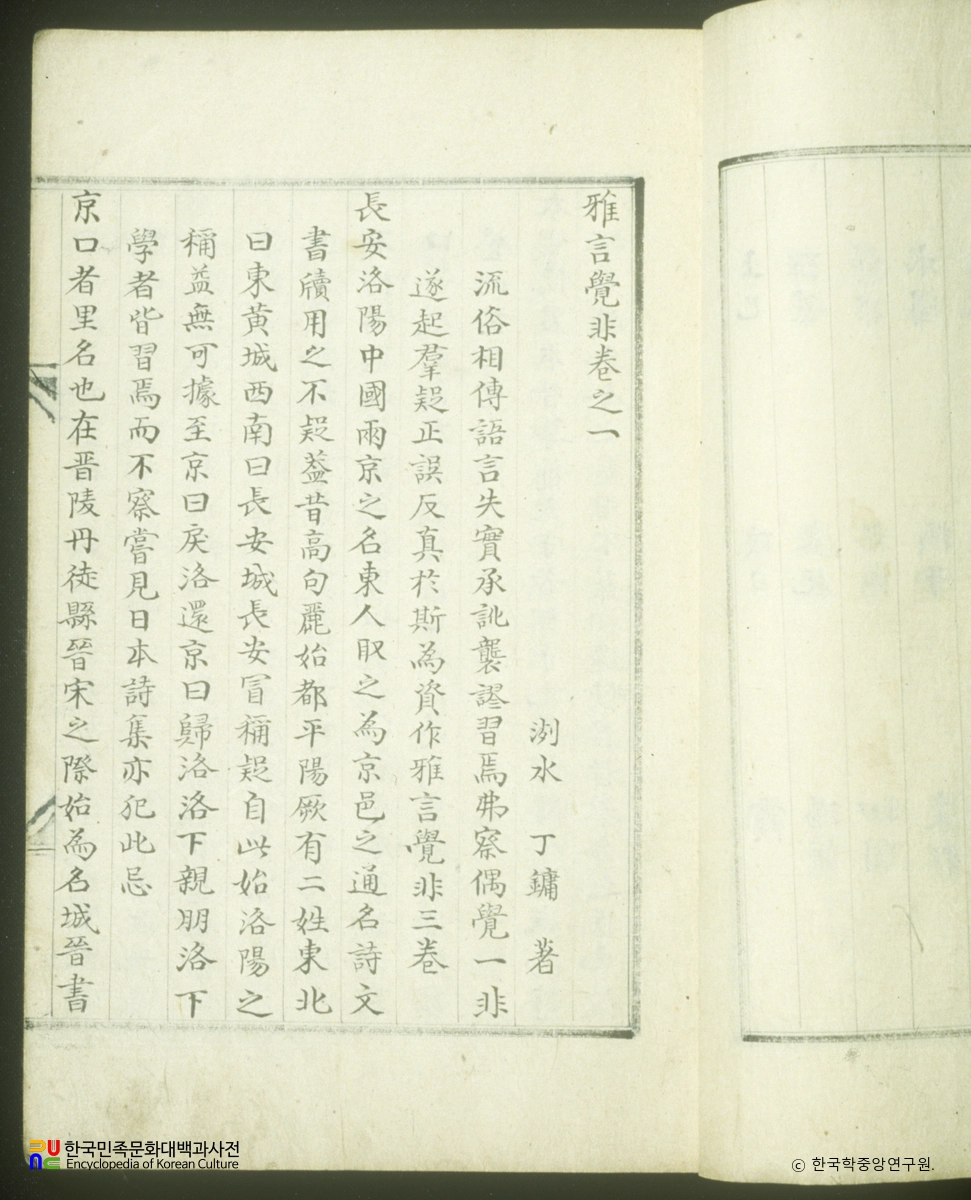 雅言覺非卷之一
洌水 丁鏞 著
流俗相傳語言失實承訛襲謬習焉弗察偶覺一非
遂起羣疑正誤反真於斯為資作雅言覺非三卷
長安洛陽中國兩京之名東人取之為京邑之通名詩文
書牘用之不疑葢昔高句麗始都平陽厥有二姓東北
曰東黄城西南曰長安城長安冒稱疑自此始洛陽之
稱益無可據至京曰戾洛還京曰歸洛洛下親朋洛下
學者皆習焉而不察嘗見日本詩集亦犯此忌
京口者里名也在晋陵丹徒縣晉宋之際始為名城晉書
한국민족문화대백과사전
Encyclopedia of Korean Culture
© 한국학중앙연구원.